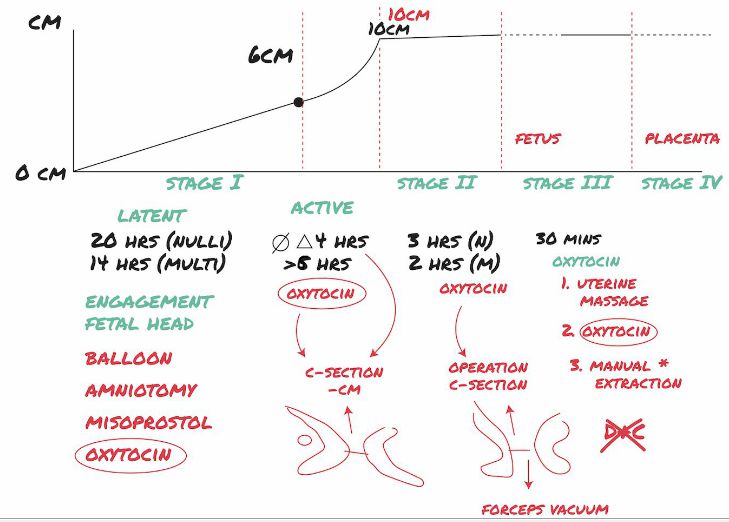 CM
10CM
10CM
6CM
0 CM
FETUS
PLACENTA
STAGE I
STAGE II
STAGE III
STAGE IV
LATENT
20 HRS (NULLI)
14 HRS (MULTI)
ENGAGEMENT
FETAL HEAD
BALLOON
AMNIOTOMY
MISOPROSTOL
OXYTOCIN
ACTIVE
∅ △ 4 HRS
>6 HRS
OXYTOCIN
C-SECTION
-CM
3 HRS (N)
2 HRS (M)
OXYTOCIN
OPERATION
C-SECTION
FORCEPS VACUUM
30 MINS
OXYTOCIN
1. UTERINE
MASSAGE
2. OXYTOCIN
3. MANUAL *
EXTRACTION